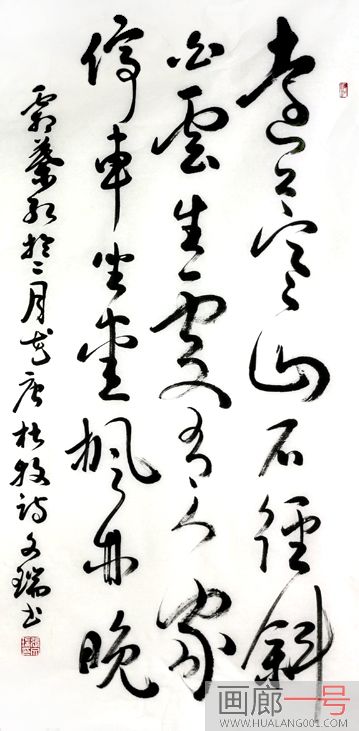 遠上寒山石徑斜
白雲生處有人家
停車坐愛楓林晚
霜葉紅於二月花唐杜牧诗文瑞书
画廊一号
WWW.HUALANG001.COM